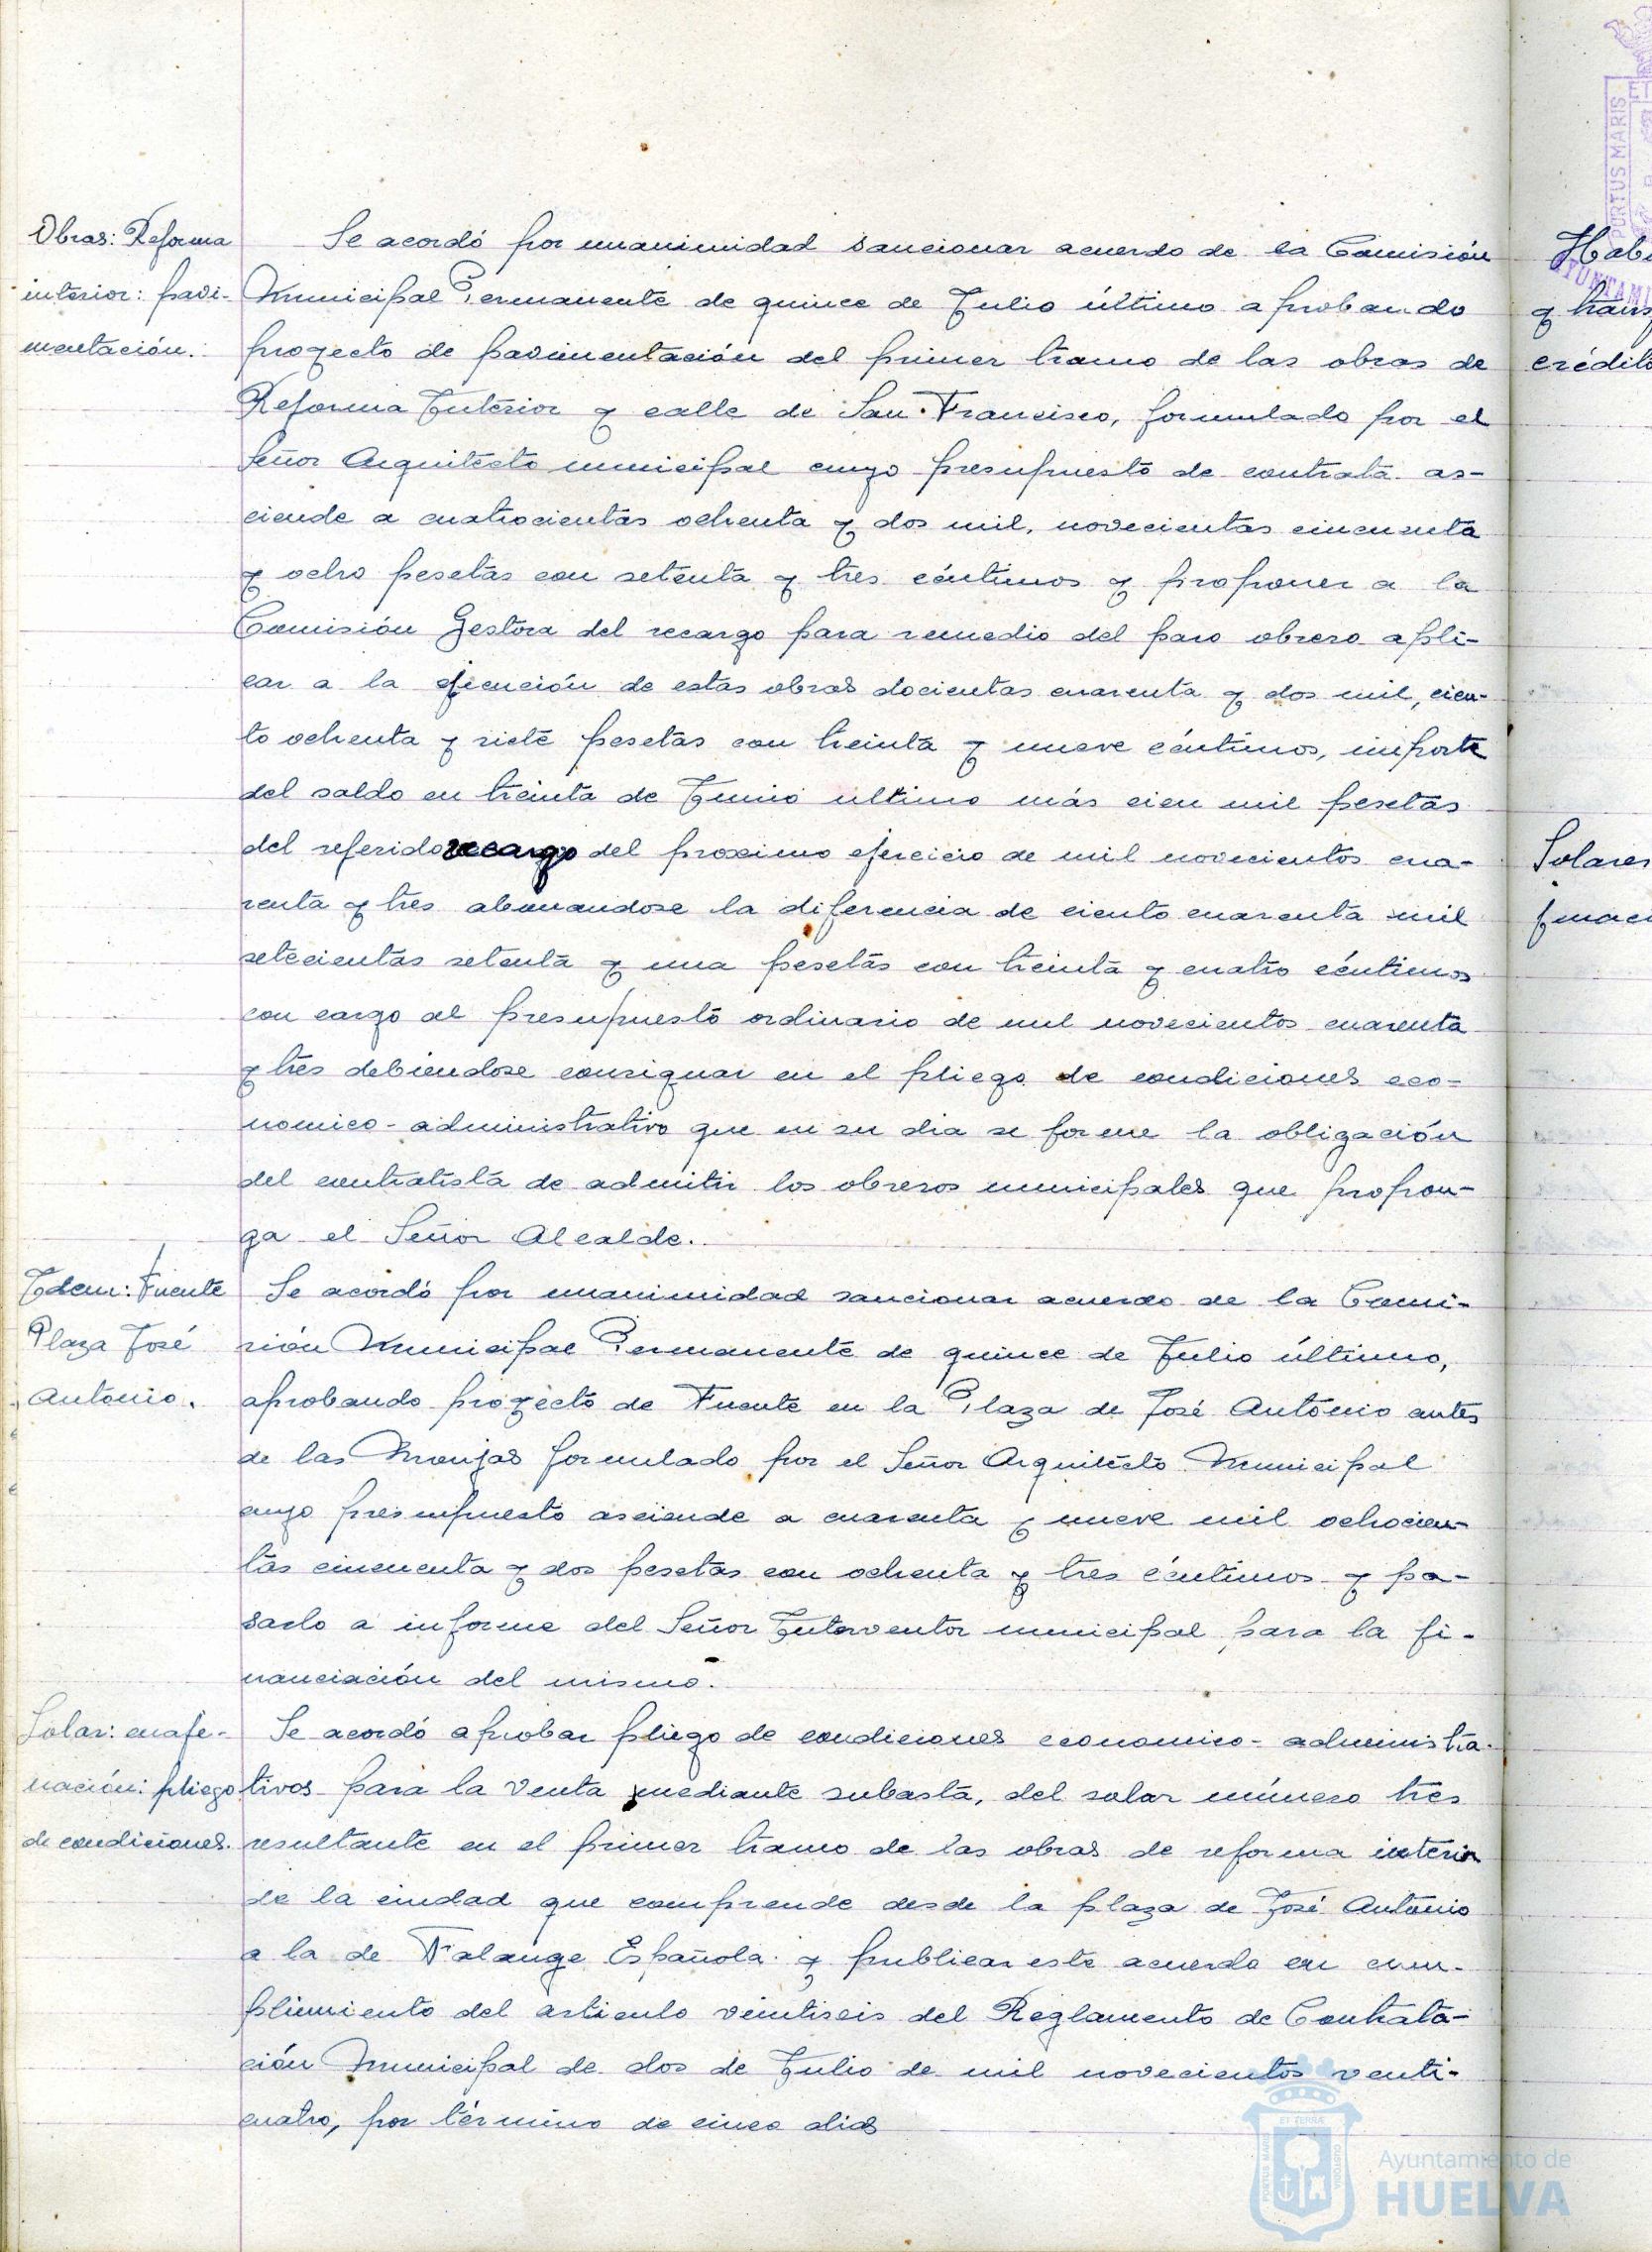 Obras: Reforma
interior: pavi-
mentación.
Se acordó por unanimidad sancionar acuerdo de la Comisión
Municipal Permanente de quince de Julio último aprobando
proyecto de pavimentación del primer tramo de las obras de
Reforma Interior y calle de San Francisco, formulado por el
Señor Arquitecto municipal cuyo presupuesto de contrata as-
ciende a cuatrocientas ochenta y dos mil, novecientas cincuenta
y ocho pesetas con setenta y tres céntimos y proponer a la
Comisión Gestora del recargo para remedio del paro obrero apli-
car a la ejecución de estas obras docientas cuarenta y dos mil, cien-
to ochenta y siete pesetas con treinta y nueve céntimos, importe
del saldo en treinta de Junio ultimo más cien mil pesetas
del referido recargo del proximo ejercicio de mil novecientos cua-
renta y tres abonandose la diferencia de ciento cuarenta mil
setecientas setenta y una pesetas con treinta y cuatro céntimos
con cargo al presupuesto ordinario de mil novecientos cuarenta
y tres debiendose consignar en el pliego de condiciones eco-
nomico-administrativo que en su dia se forme la obligación
del contratista de admitir los obreros municipales que propon-
ga el Señor Alcalde.
Idem: Fuente
Plaza José
Antonio.
Se acordó por unanimidad sancionar acuerdo de la Comi-
sión Municipal Permanente de quince de Julio último,
aprobando proyecto de Fuente en la Plaza de José Antonio antes
de las Monjas formulado por el Señor Arquitecto Municipal
cuyo presupuesto asciende a cuarenta y nueve mil ochocien-
tas cincuenta y dos pesetas con ochenta y tres céntimos y pa-
sarlo a informe del Señor Interventor municipal para la fi-
nanciación del mismo.
Solar: enaje-
nación: pliego
de condiciones.
Se acordó aprobar pliego de condiciones economico-administra-
tivos para la venta mediante subasta, del solar número tres
resultante en el primer tramo de las obras de reforma interior
de la ciudad que comprende desde la plaza de José Antonio
a la de Falange Española y publicar este acuerdo en cum-
plimiento del articulo veintiseis del Reglamento de Contrata-
ción Municipal de dos de Julio de mil novecientos venti-
cuatro, por término de cinco dias
PORTUS MARIS
crédito
Solares
Ayuntamiento de
HUELVA